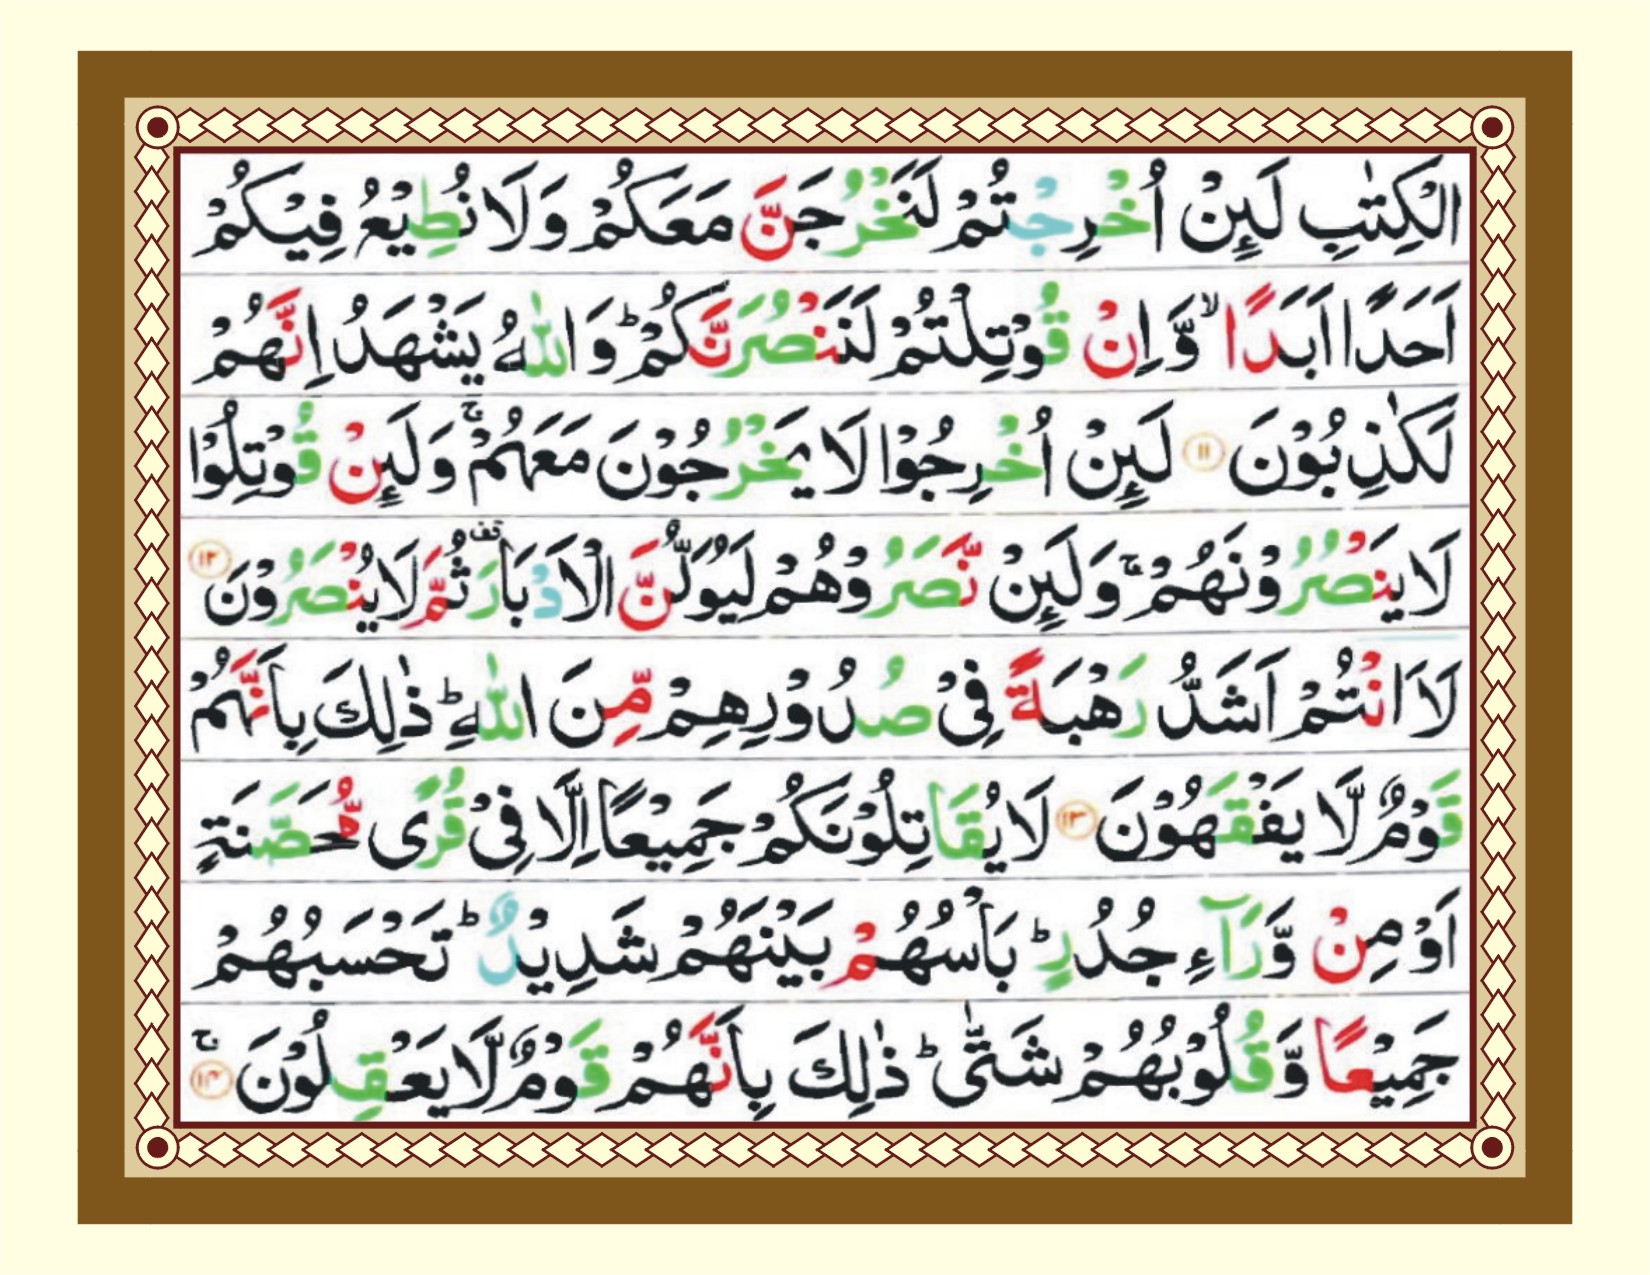 الْكِتٰبِ لَئِنْ اُخْرِجْتُمْ لَنَخْرُجَنَّ مَعَكُمْ وَلَا نُطِيْعُ فِيْكُمْ
اَحَدًا اَبَدًا ۙ وَّاِنْ قُوْتِلْتُمْ لَنَنْصُرَنَّكُمْ ؕ وَاللّٰهُ يَشْهَدُ اِنَّهُمْ
لَكٰذِبُوْنَ ۝۱۱ لَئِنْ اُخْرِجُوْا لَا يَخْرُجُوْنَ مَعَهُمْ ۚ وَلَئِنْ قُوْتِلُوْا
لَا يَنْصُرُوْنَهُمْ ۚ وَلَئِنْ نَّصَرُوْهُمْ لَيُوَلُّنَّ الْاَدْبَارَ ۫ ثُمَّ لَا يُنْصَرُوْنَ ۝۱۲
لَا۟اَنْتُمْ اَشَدُّ رَهْبَةً فِيْ صُدُوْرِهِمْ مِّنَ اللّٰهِ ؕ ذٰلِكَ بِاَنَّهُمْ
قَوْمٌ لَّا يَفْقَهُوْنَ ۝۱۳ لَا يُقَاتِلُوْنَكُمْ جَمِيْعًا اِلَّا فِيْ قُرًى مُّحَصَّنَةٍ
اَوْ مِنْ وَّرَآءِ جُدُرٍ ؕ بَاْسُهُمْ بَيْنَهُمْ شَدِيْدٌ ؕ تَحْسَبُهُمْ
جَمِيْعًا وَّقُلُوْبُهُمْ شَتّٰى ؕ ذٰلِكَ بِاَنَّهُمْ قَوْمٌ لَّا يَعْقِلُوْنَ ۚ ۝۱۴